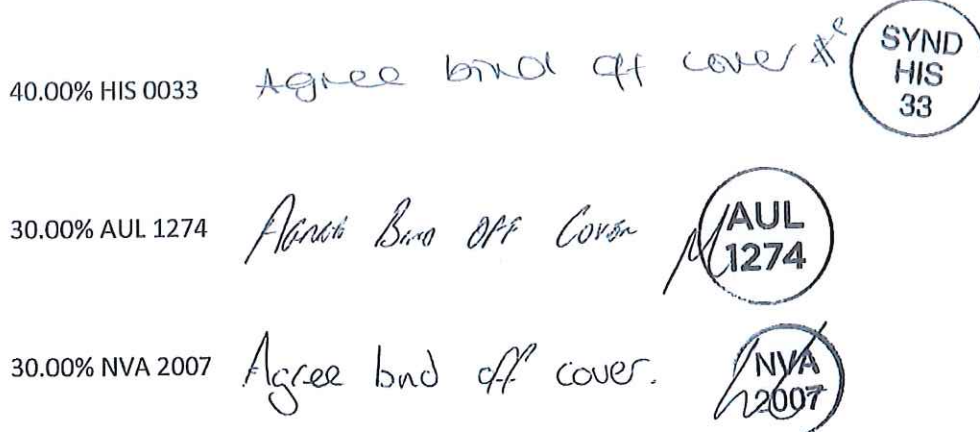 40.00% HIS 0033 Agree bind off cover
SYND
HIS
33
30.00% AUL 1274 Agree Bind OFF Cover
AUL
1274
30.00% NVA 2007 Agree bnd off cover.
NVA
2007